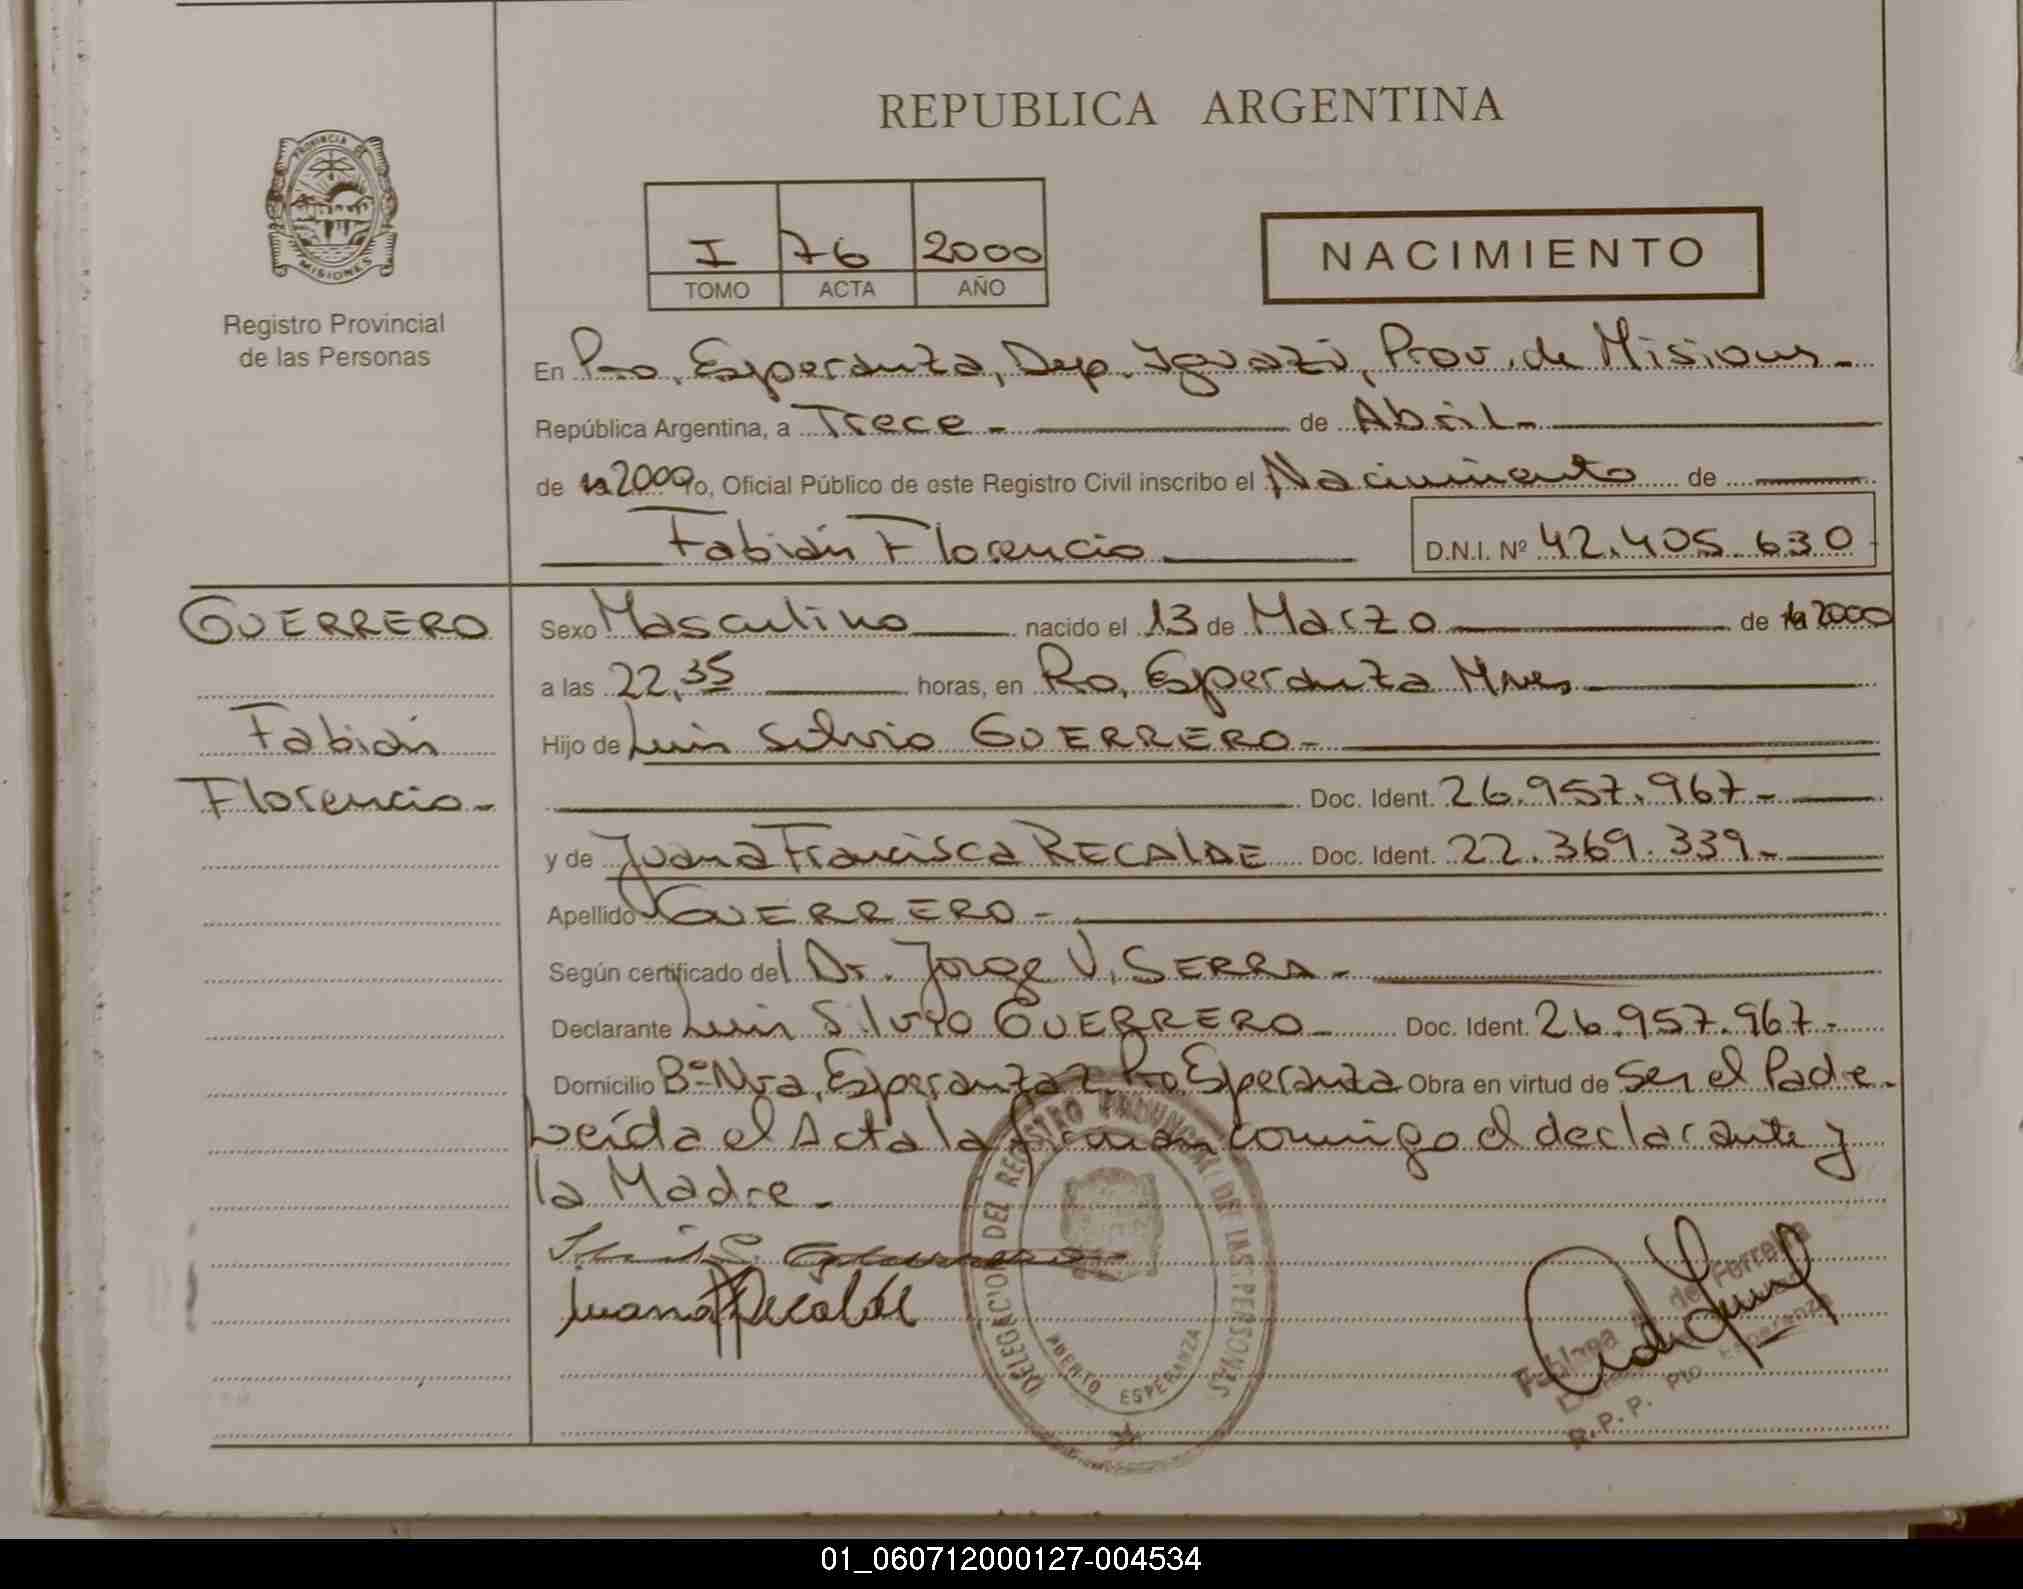 REPUBLICA ARGENTINA
PROVINCIA DE
MISIONES
Registro Provincial
de las Personas
I 76 2000
TOMO ACTA AÑO
NACIMIENTO
En Pto. Esperanza, Dep. Iguazú, Prov. de Misiones -
República Argentina, a Trece - de Abril -
de 2000, Oficial Público de este Registro Civil inscribo el Nacimiento de
Fabián Florencio D.N.I. Nº 42.405.630
GUERRERO
Fabián
Florencio -
Sexo Masculino nacido el 13 de Marzo de 2000
a las 22,35 horas, en Pto. Esperanza Mnes
Hijo de Luis Silvio GUERRERO -
Doc. Ident. 26.957.967 -
y de Juana Francisca RECALDE Doc. Ident. 22.369.339 -
Apellido GUERRERO -
Según certificado del Dr. Jorge V. SERRA -
Declarante Luis Silvio GUERRERO - Doc. Ident. 26.957.967 -
Domicilio Bº Nva. Esperanza Pto Esperanza Obra en virtud de ser el Padre -
Leída el Acta la firman conmigo el declarante y
la Madre -
Juana F Recalde
DELEGACION DEL REGISTRO PROVINCIAL DE LAS PERSONAS
PUERTO ESPERANZA
de Ferreira
R.P.P. Pto Esperanza
01_060712000127-004534